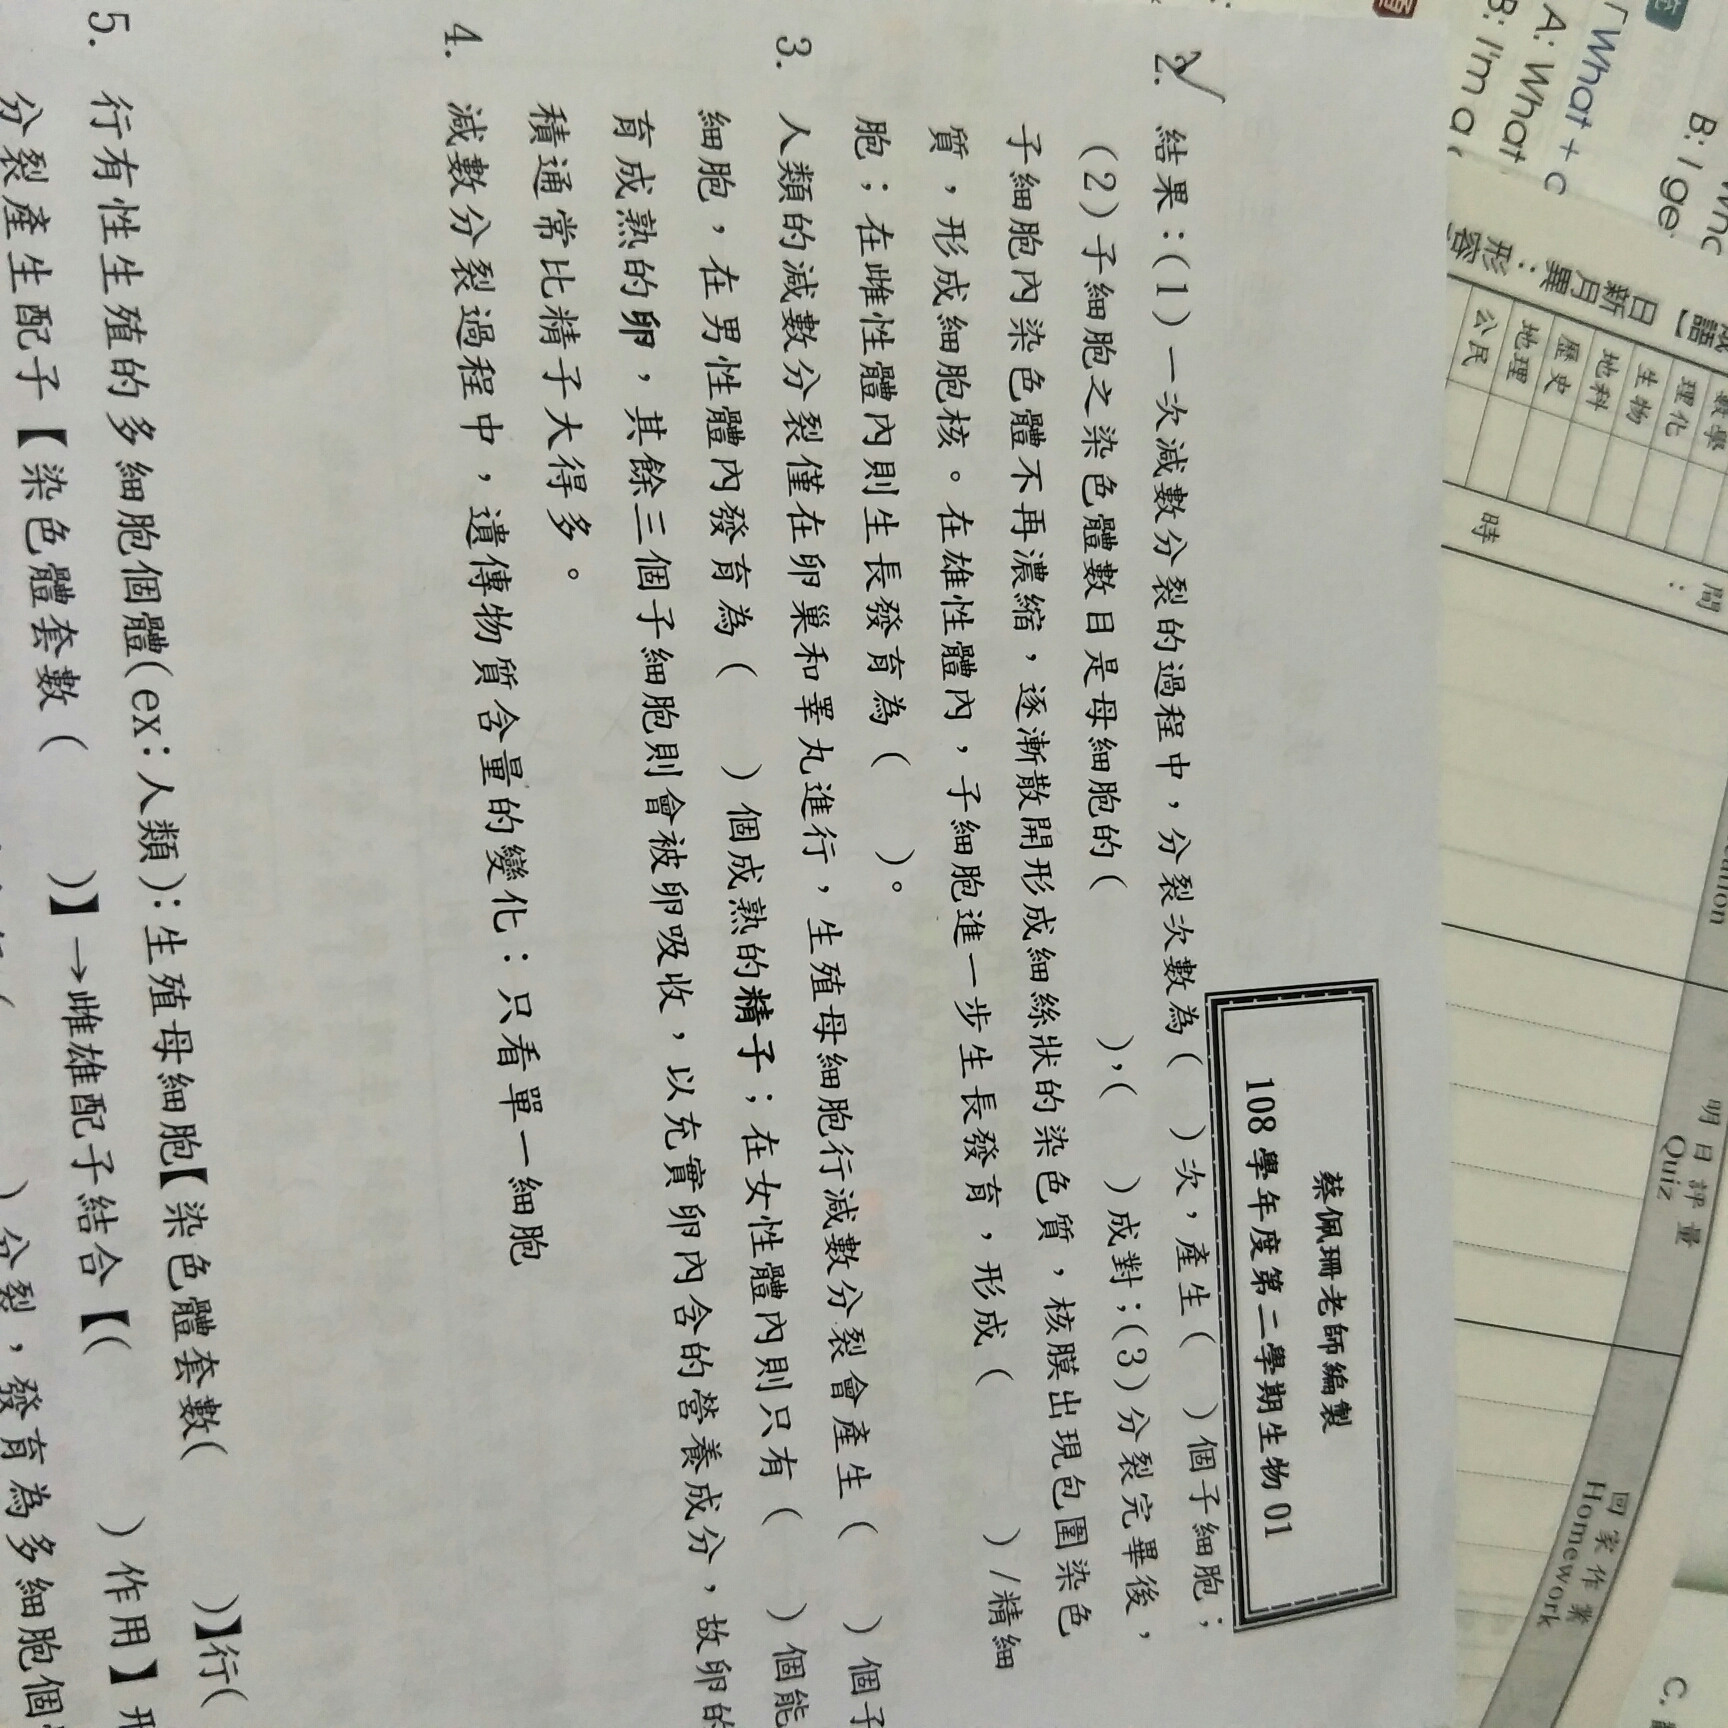 蔡佩珊老師編製
108 學年度第二學期生物 01
2. 結果：(1)一次減數分裂的過程中，分裂次數為(　)次，產生(　)個子細胞；
(2)子細胞之染色體數目是母細胞的(　)，(　)成對；(3)分裂完畢後，
子細胞內染色體不再濃縮，逐漸散開形成細絲狀的染色質，核膜出現包圍染色
質，形成細胞核。在雄性體內，子細胞進一步生長發育，形成(　)/精細
胞；在雌性體內則生長發育為(　)。
3. 人類的減數分裂僅在卵巢和睪丸進行，生殖母細胞行減數分裂會產生(　)個子
細胞，在男性體內發育為(　)個成熟的精子；在女性體內則只有(　)個能
育成熟的卵，其餘三個子細胞則會被卵吸收，以充實卵內含的營養成分，故卵的
積通常比精子大得多。
4. 減數分裂過程中，遺傳物質含量的變化：只看單一細胞
5. 行有性生殖的多細胞個體(ex：人類)：生殖母細胞【染色體套數(　)】行(
分裂產生配子【染色體套數(　)】→雌雄配子結合【(　)作用】形
)分裂，發育為多細胞個
B: I ge
「What + c
A: What
B: I'm a
日新月異：形容
數學
理化
生物
地科
歷史
地理
公民
時間：
明日評量
Quiz
回家作業
Homework
C.